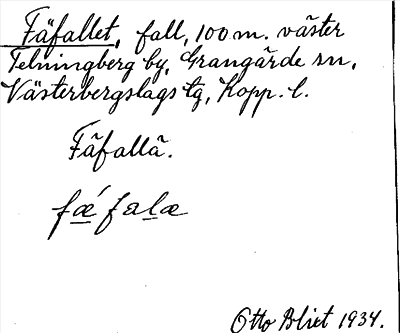 Fäfallet, fall, 100 m. väster
Telningberg by, Grangärde sn,
Västerbergslags tg, Kopp. l.
Fäfallä.
fǽfalæ
Otto Blixt 1934.